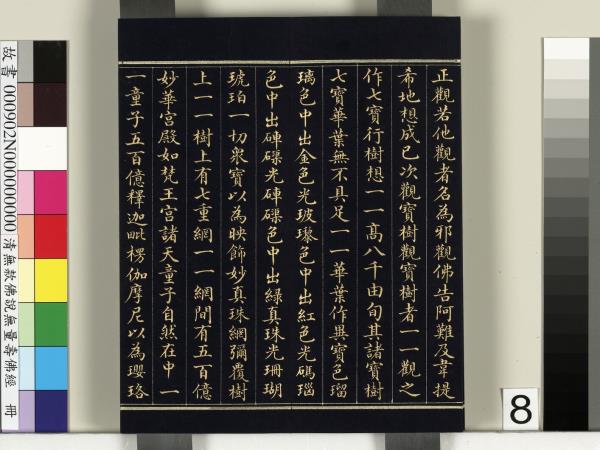 正觀若他觀者名為邪觀佛告阿難及韋提
希地想成已次觀寶樹觀寶樹者一一觀之
作七寶行樹想一一高八千由旬其諸寶樹
七寶華葉無不具足一一華葉作異寶色瑠
璃色中出金色光玻瓈色中出紅色光碼瑙
色中出硨磲光硨磲色中出綠真珠光珊瑚
琥珀一切衆寶以為映飾妙真珠網彌覆樹
上一一樹上有七重網一一網間有五百億
妙華宮殿如梵王宮諸天童子自然在中一
一童子五百億釋迦毗楞伽摩尼以為瓔珞
故書 000902N000000000 清無款佛說無量壽佛經 冊
8